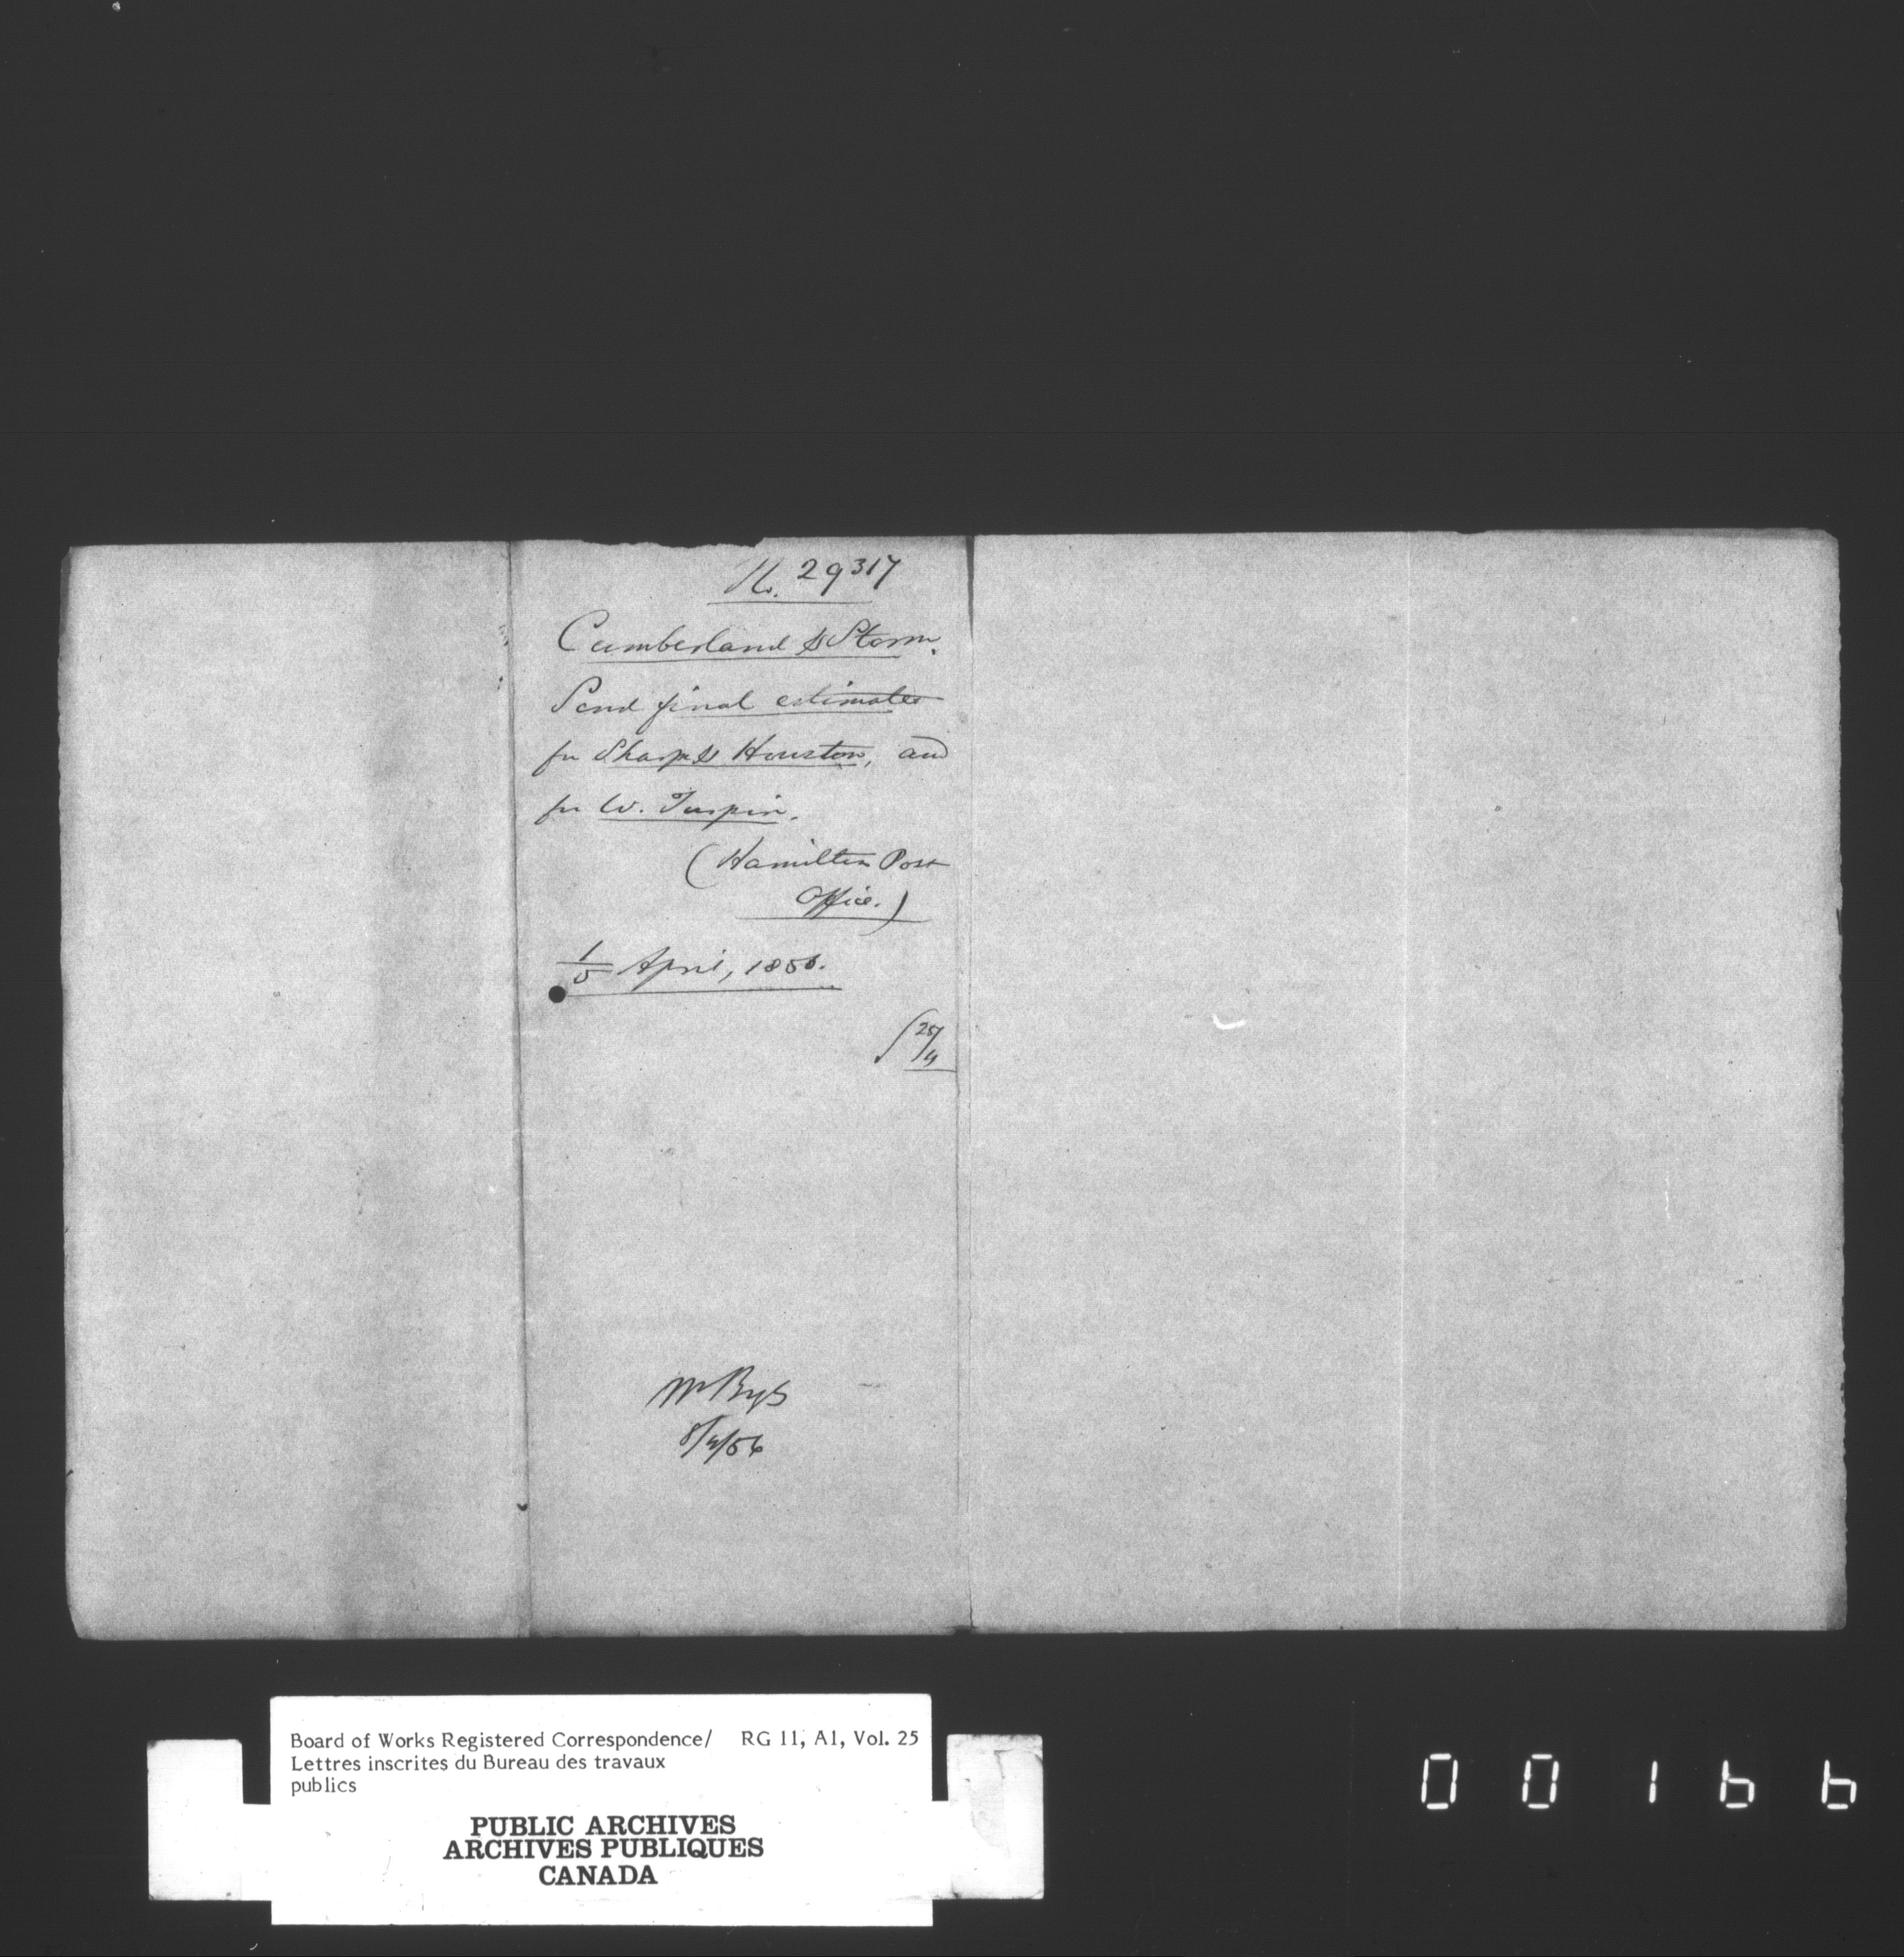 No. 29317
Cumberland & Storm.
Send final estimates
for Sharp & Houston, and
for W. Turpin.
(Hamilton Post
Office.)
1/5 April, 1856.
25/4
8/4/56
Board of Works Registered Correspondence/ RG 11, A1, Vol. 25
Lettres inscrites du Bureau des travaux
publics
PUBLIC ARCHIVES
ARCHIVES PUBLIQUES
CANADA
00166